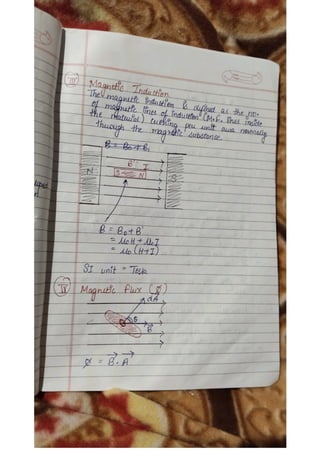 (III) Magnetic Induction
The magnetic Induction is defined as the no.
of magnetic lines of Induction (M.F. lines inside
the material) crossing per unit area normally
through the magnetic substance.
B = B₀ + B₁
B' I
N S N S
B = B₀ + B'
= μ₀H + μ₀I
= μ₀ (H + I)
SI unit = Tesla
Magnetic flux (ϕ)
dA
θ
B⃗
ϕ = B⃗ . A⃗